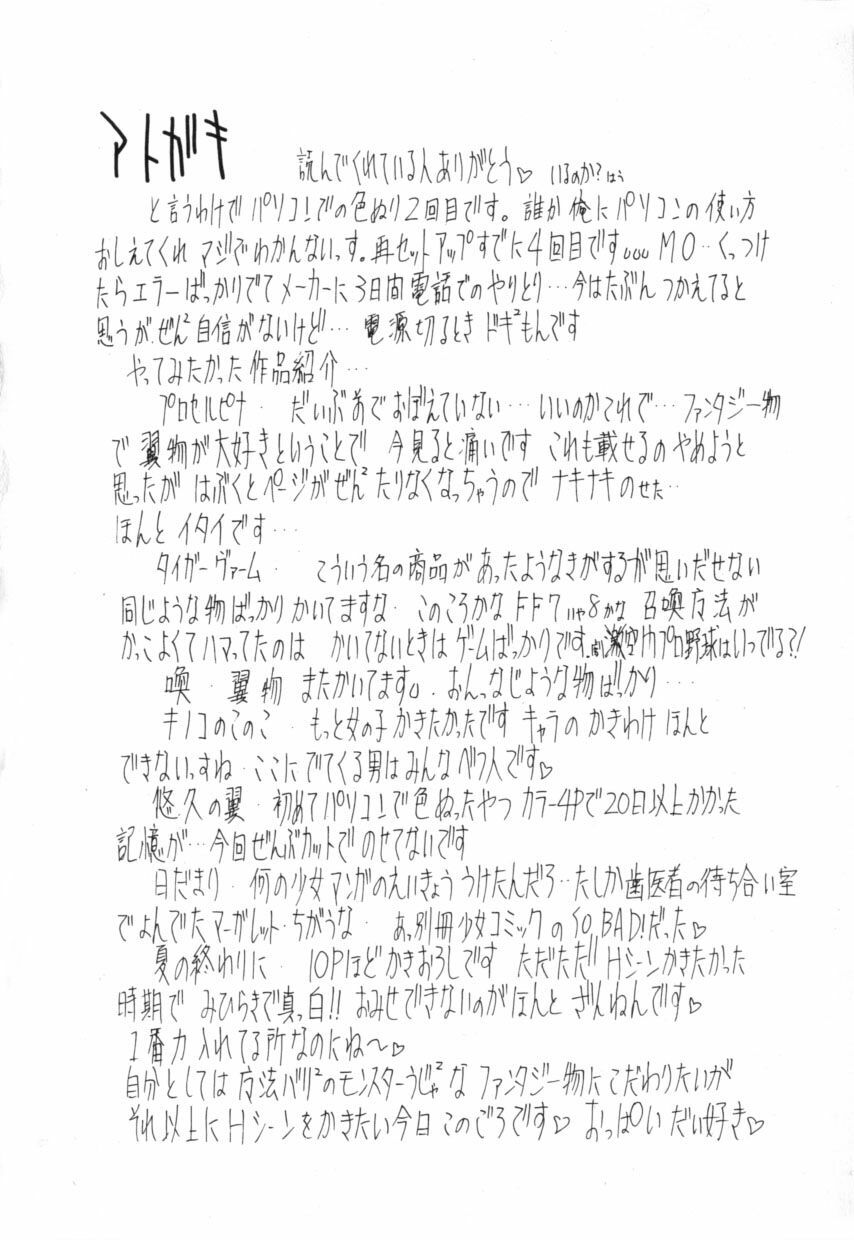 アトガキ
読んでくれている人ありがとう♡ いるのか?はぅ
と言うわけで パソコンでの色ぬり2回目です。誰か俺にパソコンの使い方
おしえてくれ マジでわかんないっす。再セットアップすでに4回目です。。。MO‥くっつけ
たらエラーばっかりでてメーカーに3日間電話でのやりとり…今はたぶんつかえてると
思うが、ぜん²自信がないけど… 電源切るとき ドギ²もんです
やってみたかった作品紹介…
プロセルピナ・ だいぶ前でおぼえていない…いいのかこれで…ファンタジー物
で翼物が大好きということで 今見ると痛いです これも載せるのやめようと
思ったが はぶくとページがぜん²たりなくなっちゃうので ナキナキのせた‥
ほんと イタイです…
タイガーヴァーム・ こういう名の商品があったようなきがするが思いだせない
同じような物ばっかりかいてますな・ このころかなFF7いや8かな 召喚方法が
かっこよくてハマってたのは かいてないときはゲームばっかりです。激空間プロ野球はいつでる?!
喚・翼物 またかいてます。おんなじような物ばっかり…
キノコのこのこ・もっと女の子かきたかったです キャラのかきわけほんと
できないっすね・ここにでてくる男はみんなベツ人です♡
悠久の翼・初めてパソコンで色ぬったやつ カラー4Pで20日以上かかった
記憶が…今回ぜんぶカットでのせてないです
日だまり・何の少女マンガのえいきょううけたんだろ‥たしか歯医者の待ち合い室
でよんでたマーガレット・ちがうな・ あっ別冊少女コミックのSO BAD!だった♡
夏の終わりに・ 10Pほどかきおろしです ただただ!!Hシーンかきたかった
時期で みひらきで真っ白!! おみせできないのがほんと ざんねんです♡
1番力入れてる所なのにね〜♡
自分としては 方法バリ²のモンスターうじゃ²な ファンタジー物にこだわりたいが
それ以上にHシーンをかきたい今日このごろです♡ おっぱいだい好き♡